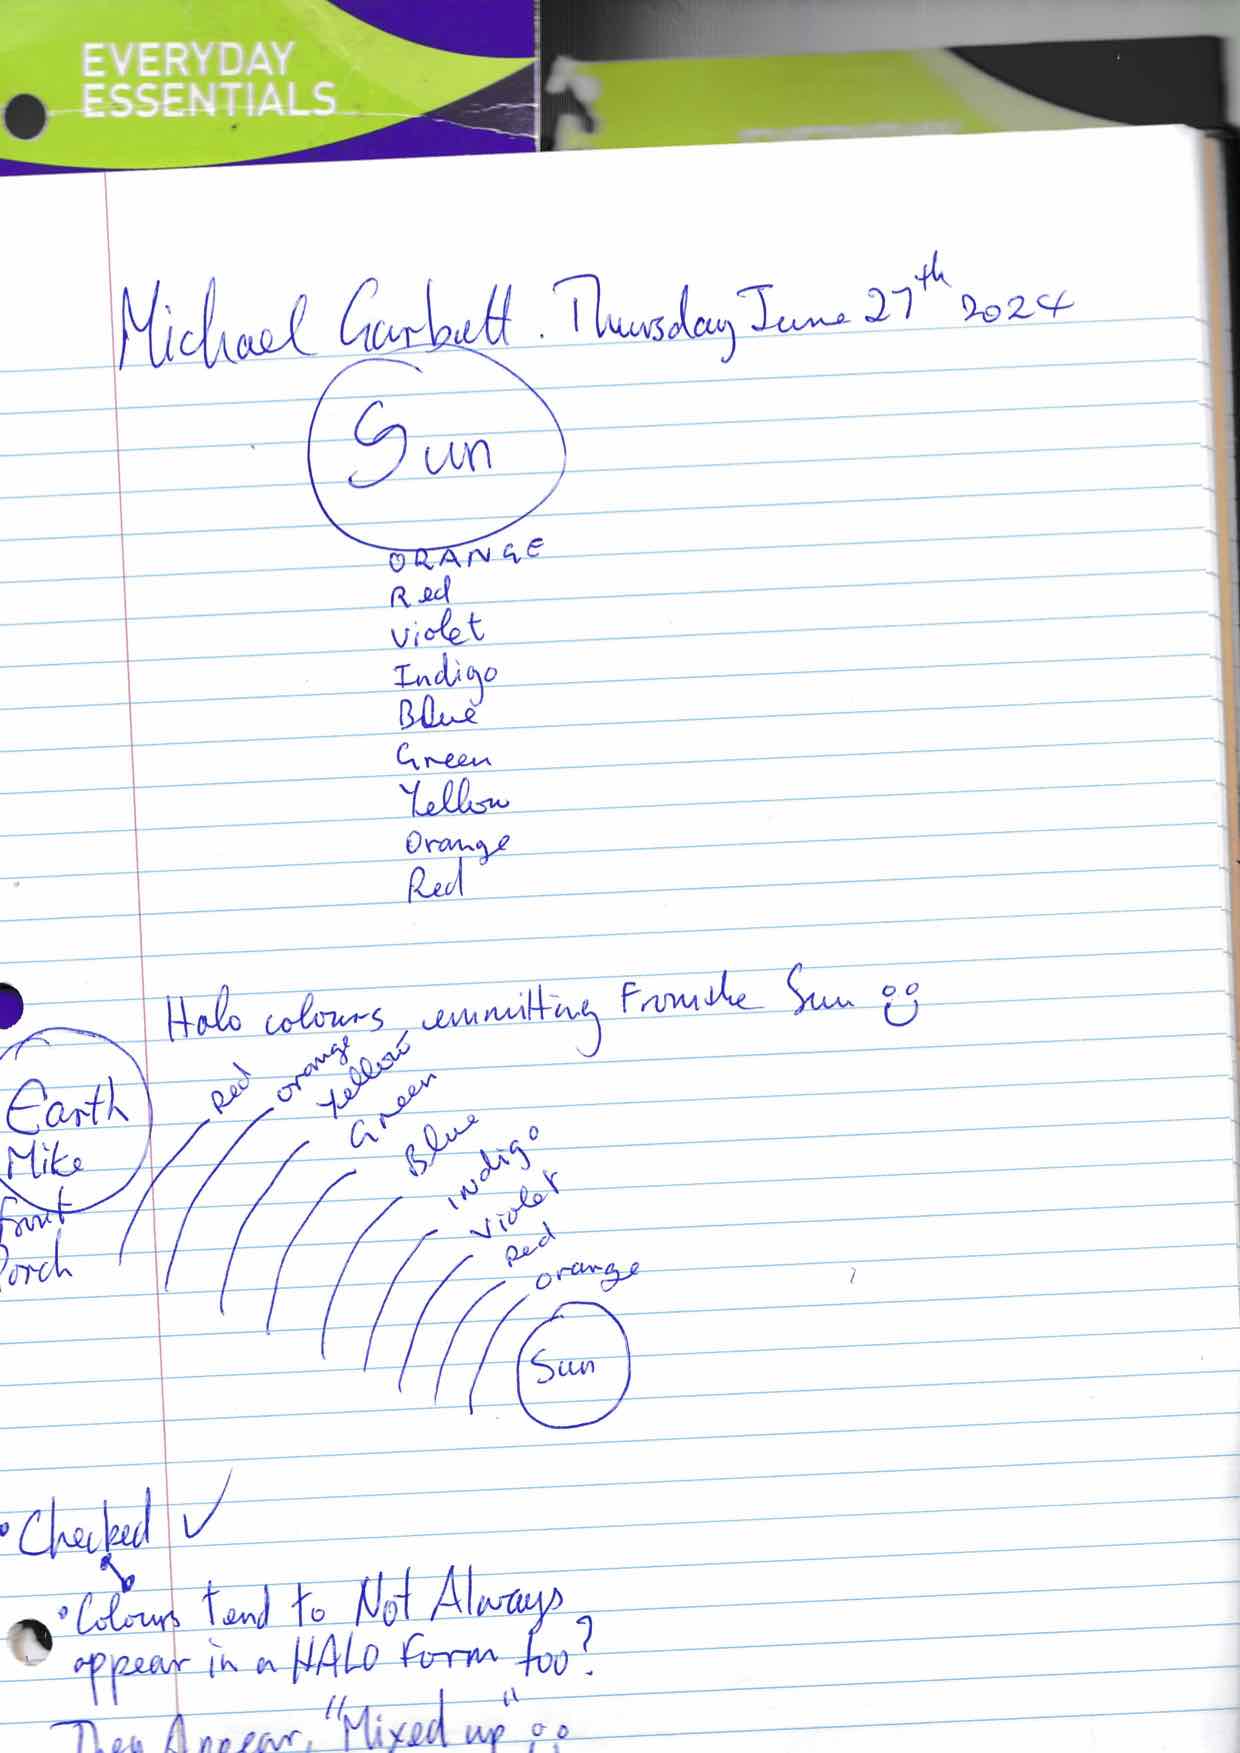 EVERYDAY
ESSENTIALS
Michael Garbutt. Thursday June 27th 2024
Sun
ORANGE
Red
Violet
Indigo
Blue
Green
Yellow
Orange
Red
Halo colours emmitting From the Sun
Earth
Mike
Front
Porch
Red
orange
Yellow
Green
Blue
Indigo
Violet
Red
orange
Sun
• Checked ✓
• Colours tend to Not Always
appear in a HALO Form too?
They Appear, "Mixed up"